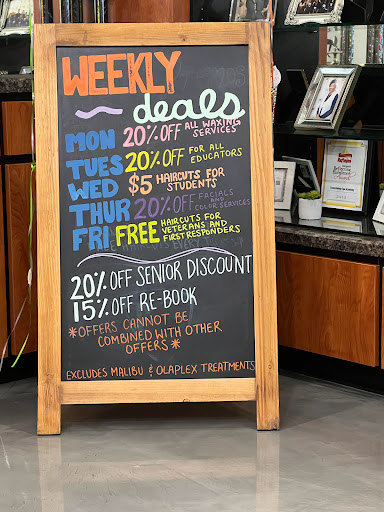 WEEKLY
deals
MON 20% OFF ALL WAXING SERVICES
TUES 20% OFF FOR ALL EDUCATORS
WED $5 HAIRCUTS FOR STUDENTS
THUR 20% OFF FACIALS AND COLOR SERVICES
FRI FREE HAIRCUTS FOR VETERANS AND FIRST RESPONDERS
20% OFF SENIOR DISCOUNT
15% OFF RE-BOOK
*OFFERS CANNOT BE
COMBINED WITH OTHER
OFFERS*
EXCLUDES MALIBU & OLAPLEX TREATMENTS